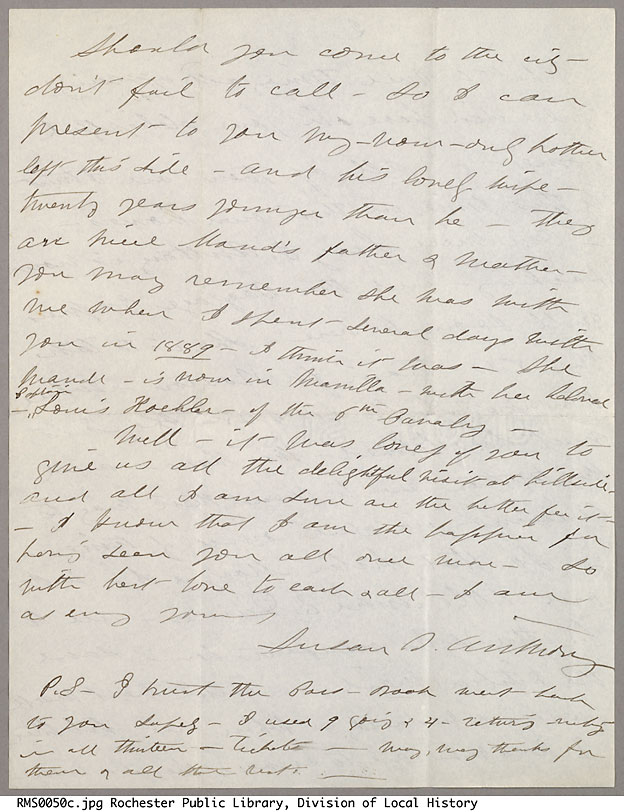 Should you come to the city
don't fail to call - so I can
present to you my - now - only brother
left this side - and his lovely wife -
twenty years younger than he - they
are niece Maud's father & mother -
you may remember she was with
me when I spent several days with
you in 1889 - I think it was - She
Maude - is now in Manilla - with her beloved
Captain
- Louis Koehler - of the 6th Cavalry -
Well - it was lovely of you to
give us all the delightful visit at hillside -
and all I am sure are the better for it -
- I know that I am the happier for
having seen you all once more - So
with best love to each & all - I am
as ever yours
Susan B. Anthony
P.S - I trust the Pass-book went back
to you safely - I used 9 going & 4 - returning
in all thirteen - tickets - many, many thanks for
them & all the rest. -
RMS0050c.jpg Rochester Public Library, Division of Local History